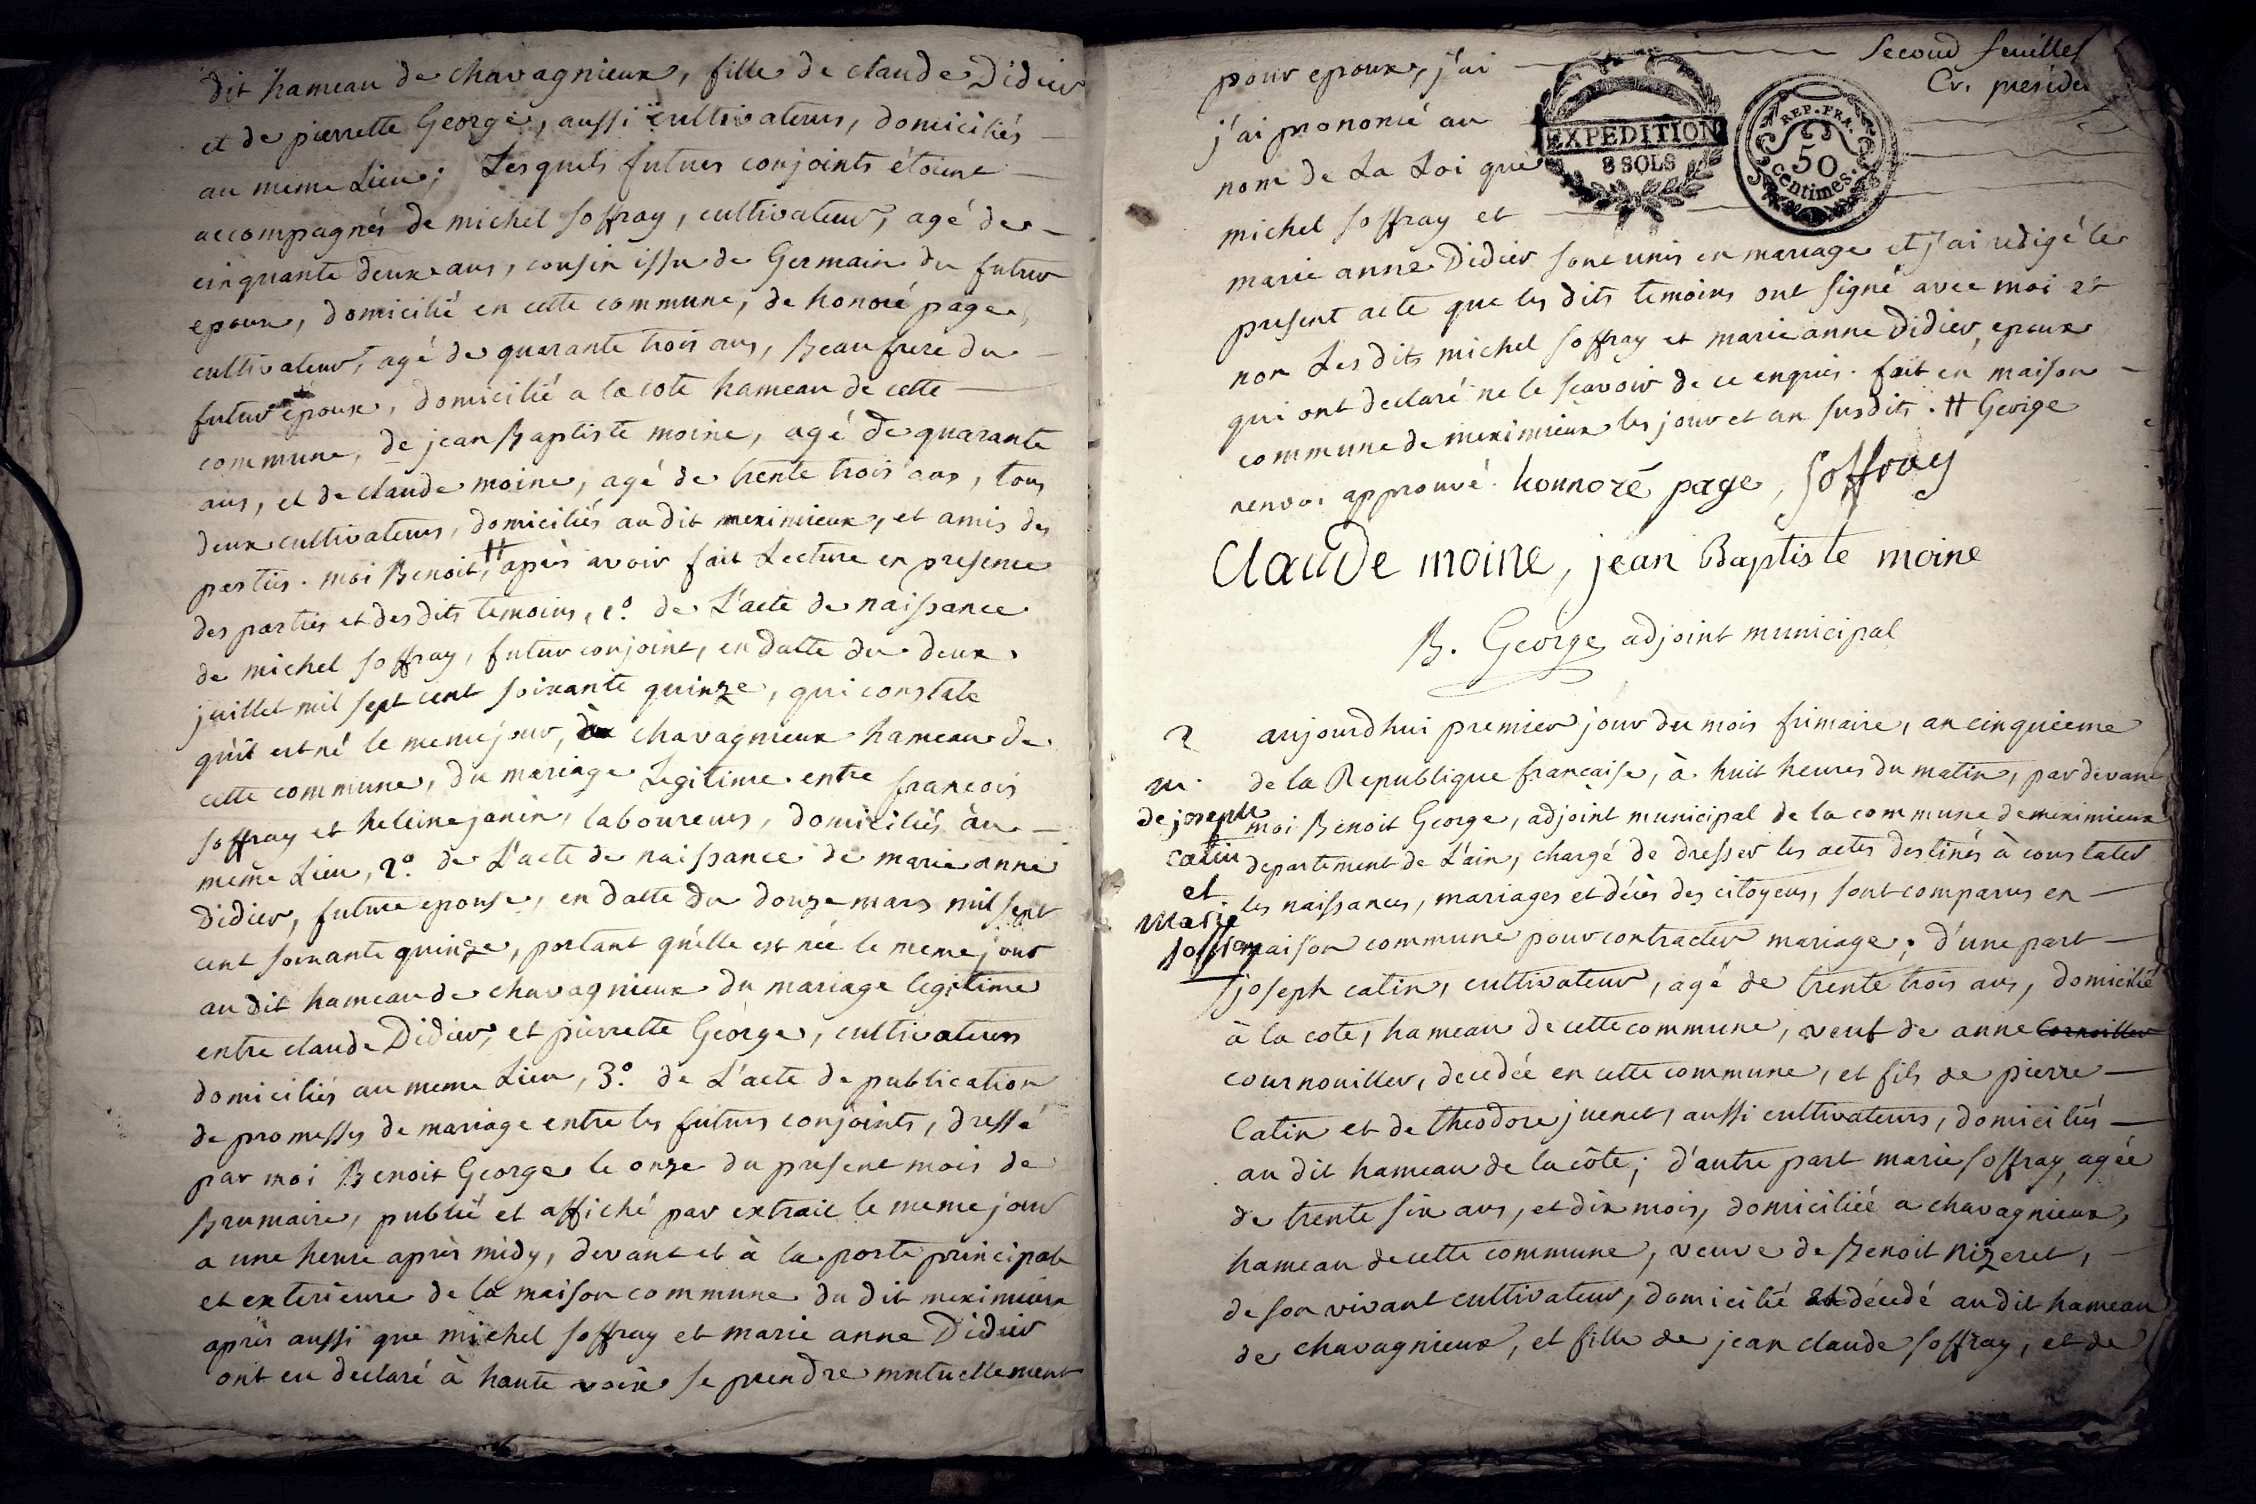 dit hameau de chavagnieux, fille de claude Didier
et de pierrette George, aussi cultivateurs, domiciliés
au meme Lieu; Lesquels futurs conjoints étoient
accompagnés de michel soffray, cultivateur, agé de
cinquante deux ans, cousin issu de Germain du futur
epoux, domicilié en cette commune, de honoré page,
cultivateur, agé de quarante trois ans, Beaufrere du
futur époux, domicilié a la cote hameau de cette
commune, de jean Baptiste moine, agé de quarante
ans, et de claude moine, agé de trente trois ans, tous
deux cultivateurs, domiciliés au dit meximieux, et amis des
parties. moi Benoit, # après avoir fait Lecture en presence
des parties et des dits temoins, 1º. de L'acte de naissance
de michel soffray, futur conjoint, en datte du deux
juillet mil sept cent soixante quinze, qui constate
qu'il est né le meme jour, à chavagnieux hameau de
cette commune, du mariage Legitime entre françois
soffray et heleine janin, laboureurs, domiciliés au
même Lieu, 2º. de L'acte de naissance de marie anne
Didier, future epouse, en datte du douze mars mil sept
cent soixante quinze, portant qu'elle est née le meme jour
au dit hameau de chavagnieux du mariage legitime
entre claude Didier, et pierrette George, cultivateurs
domiciliés au meme Lieu, 3º. de L'acte de publication
de promesses de mariage entre les futurs conjoints, dressé
par moi Benoit George le onze du present mois de
Brumaire, publié et affiché par extrait le meme jour
a une heure après midy, devant et à la porte principale
et exterieure de la maison commune du dit meximieux
après aussi que michel soffray et marie anne Didier
ont eu declaré à haute voix se prendre mutuellement
Second feuillet
Cr. preside
pour epoux, j'ai
j'ai prononcé au
nom de La Loi que
michel soffray et
EXPEDITION
8 SOLS
REP. FRA.
50
centimes.
marie anne Didier sont unis en mariage et j'ai redigé le
present acte que les dits temoins ont signé avec moi et
non Lesdits michel soffray et marie anne Didier, epoux
qui ont declaré ne le scavoir de ce enquis. fait en maison
commune de meximieux les jour et an susdits. # George
renvoi approuvé. honnoré page, soffray
Claude moine, jean Baptiste moine
B. George adjoint municipal
2
m.
de joseph
catin
et
Marie
soffray
aujourd'hui premier jour du mois frimaire, an cinquieme
de la Republique francaise, à huit heures du matin, par devant
moi Benoit George, adjoint municipal de la commune de meximieux
departement de L'ain, chargé de dresser les actes destinés à constater
les naissances, mariages et décès des citoyens, sont comparus en
maison commune pour contracter mariage; d'une part
joseph catin, cultivateur, agé de trente trois ans, domicilié
à la cote, hameau de cette commune, veuf de anne Cornoiller
cournouiller, decedée en cette commune, et fils de pierre
Catin et de theodore juenet, aussi cultivateurs, domiciliés
au dit hameau de la côte; d'autre part marie soffray, agée
de trente six ans, et dix mois, domiciliée a chavagnieux,
hameau de cette commune, veuve de Benoit nizeret,
de son vivant cultivateur, domicilié et décedé au dit hameau
de chavagnieux, et fille de jean claude soffray, et de